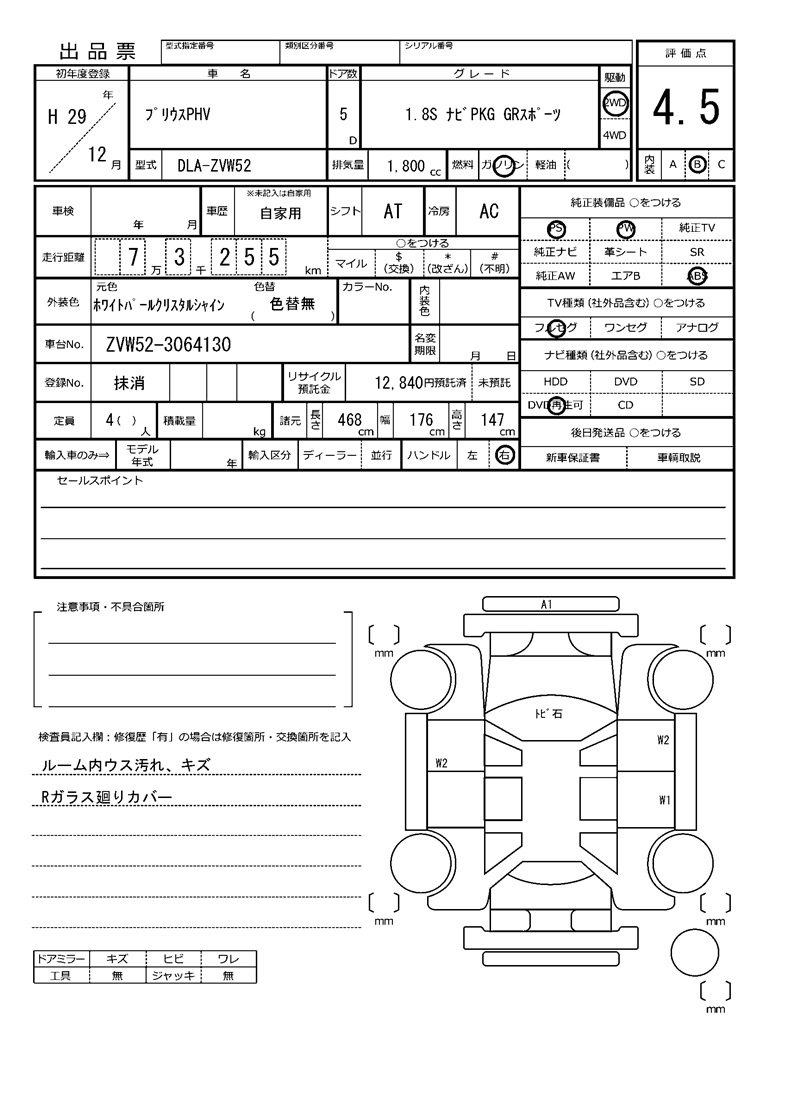 出品票
型式指定番号 類別区分番号 シリアル番号
評価点
初年度登録 車名 ドア数 グレード 駆動
H 29 年 12 月
プリウスPHV 5 D 1.8S ナビPKG GRスポーツ 2WD 4WD
4.5
型式 DLA-ZVW52 排気量 1,800 cc 燃料 ガソリン 軽油 ( )
内装 A B C
車検 年 月 車歴 ※未記入は自家用 自家用 シフト AT 冷房 AC
純正装備品 ○をつける
PS PW 純正TV
純正ナビ 革シート SR
純正AW エアB ABS
走行距離 7 万 3 千 2 5 5 km
○をつける
マイル $ (交換) * (改ざん) # (不明)
外装色 元色 ホワイトパールクリスタルシャイン 色替 ( 色替無 ) カラーNo. 内装色
TV種類(社外品含む) ○をつける
フルセグ ワンセグ アナログ
車台No. ZVW52-3064130 名変期限 月 日
ナビ種類(社外品含む) ○をつける
HDD DVD SD
DVD再生可 CD
登録No. 抹消 リサイクル預託金 12,840円預託済 未預託
定員 4 ( ) 人 積載量 kg 諸元 長さ 468 cm 幅 176 cm 高さ 147 cm
後日発送品 ○をつける
新車保証書 車輌取説
輸入車のみ⇒ モデル年式 年 輸入区分 ディーラー 並行 ハンドル 左 右
セールスポイント
注意事項・不具合箇所
A1
mm mm
トビ石
検査員記入欄:修復歴「有」の場合は修復箇所・交換箇所を記入
ルーム内ウス汚れ、キズ
Rガラス廻りカバー
W2
W2
W1
mm mm
ドアミラー キズ ヒビ ワレ
工具 無 ジャッキ 無
mm